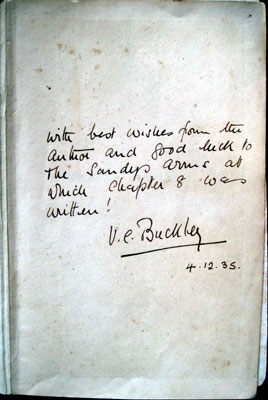 With best wishes from the
Author and good luck to
the Sandys Arms at
which Chapter 8 was
written!
V.C. Buckley
4.12.35.